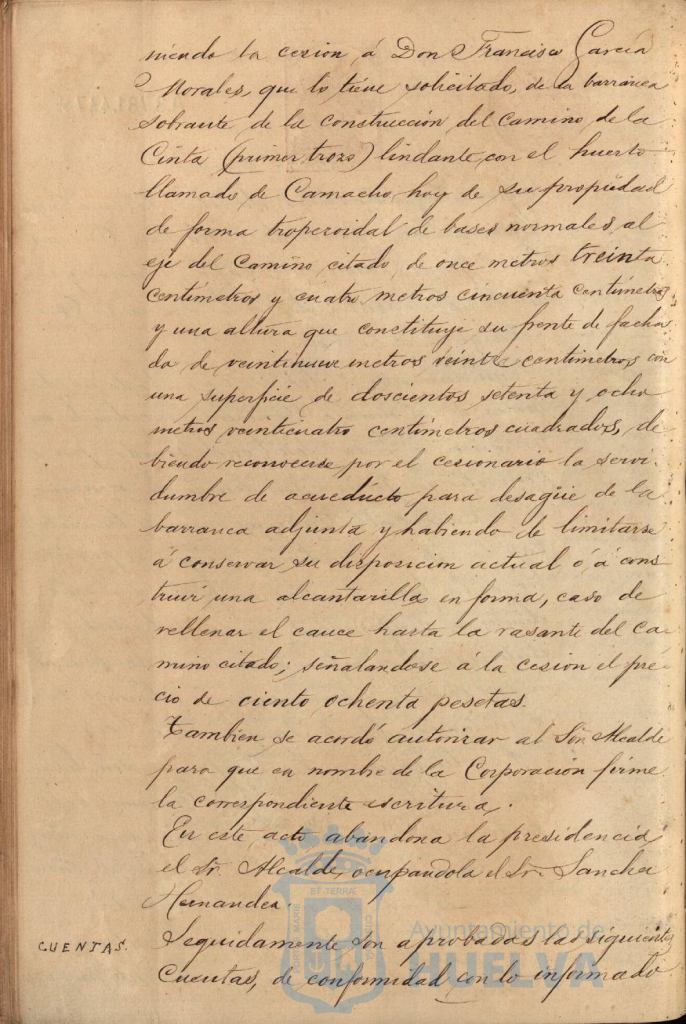 niendo la cesion á Don Francisco García
Morales, que lo tiene solicitado, de la barranca
sobrante de la construcción del Camino de la
Cinta (primer trozo) lindante con el huerto
llamado de Camacho, hoy de su propiedad
de forma troperoidal de bases normales al
eje del Camino citado, de once metros treinta
centímetros y cuatro metros cincuenta centímetros
y una altura que constituye su frente de facha
da de veintinueve metros veinte centímetros, con
una superficie de doscientos setenta y ocho
metros veinticuatro centímetros cuadrados, de
biendo reconocerse por el cesionario la servi
dumbre de acueducto para desagüe de la
barranca adjunta y habiendo de limitarse
á conservar su disposicion actual ó á cons
truir una alcantarilla en forma, caso de
rellenar el cauce hasta la rasante del Ca
mino citado; señalandose á la cesion el pre
cio de ciento ochenta pesetas.
Tambien se acordó autorizar al Sõr. Alcalde
para que en nombre de la Corporación firme
la correspondiente escritura.
En este acto abandona la presidencia
el Sr. Alcalde, ocupandola el Sr. Sanchez
Hernandez.
CUENTAS.
Seguidamente son aprobadas las siguientes
Cuentas, de conformidad con lo informado
Ayuntamiento de
HUELVA